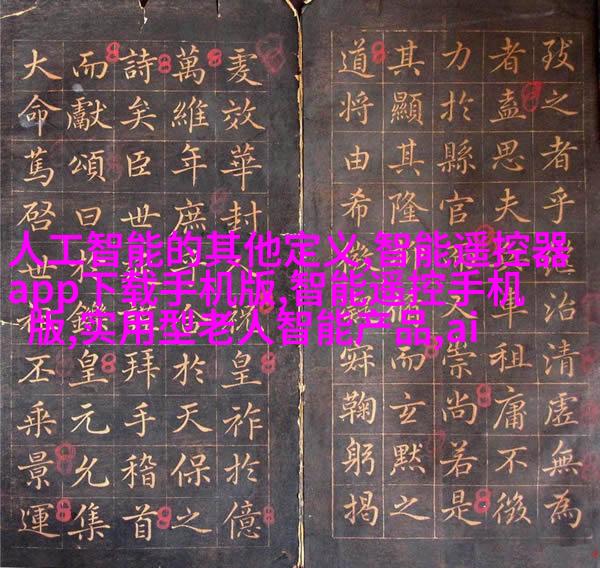 人工智能的其他定义,智能遥控器
app下载手机版,智能遥控手机
版,实用型老人智能产品,ai
致之者乎继治清虛無為
者盍思夫車租庸不徵
力於縣官又崇尚若是
其顯其隆而玄默之
道將由希鞠躬揭
效華封人祝皇祚於億
萬維年庶於天保之
詩矣臣世拜手稽首
而獻頌曰於鑠皇元允集
大命篤啓世丕乘景運